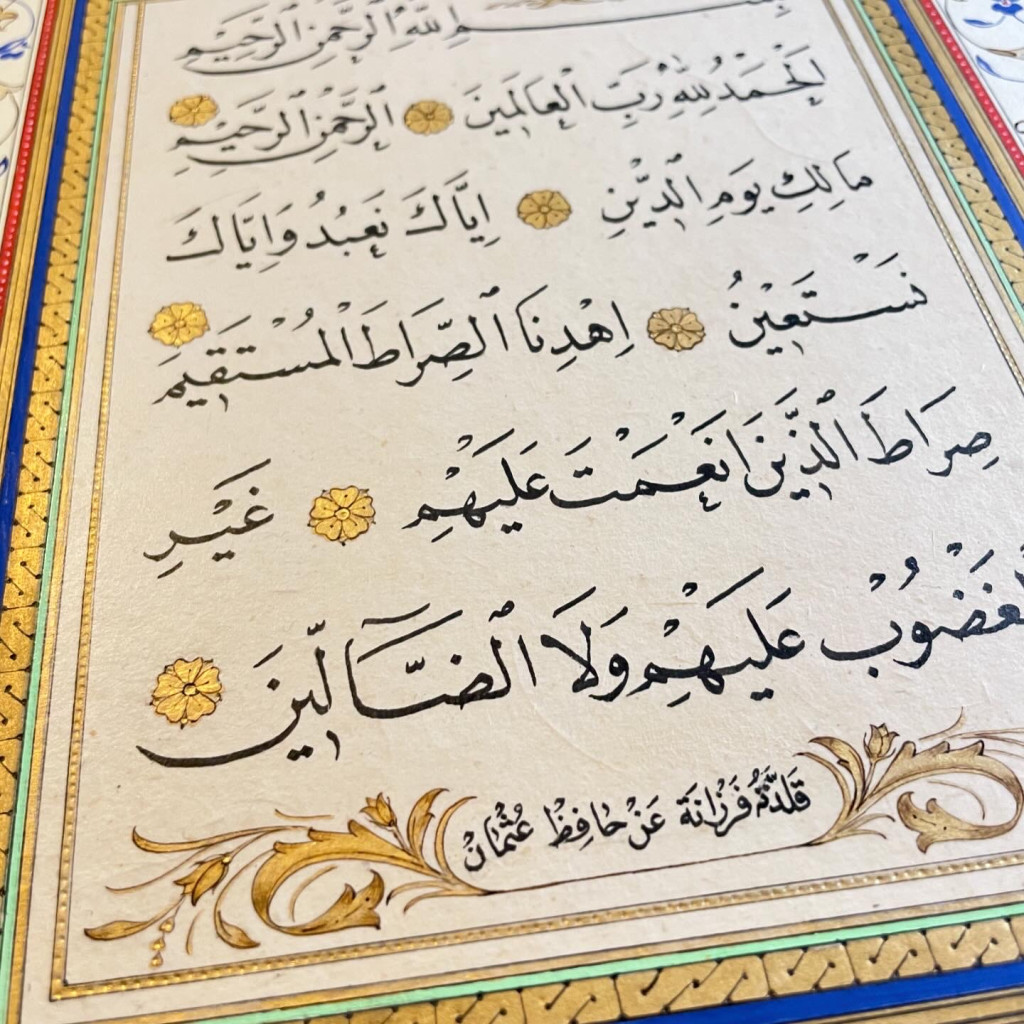 بِسْمِ ٱللّٰهِ ٱلرَّحْمٰنِ ٱلرَّحِيمِ
اَلْحَمْدُ لِلّٰهِ رَبِّ ٱلْعَالَمِينَ ٱلرَّحْمٰنِ ٱلرَّحِيمِ
مَالِكِ يَوْمِ ٱلدِّينِ اِيَّاكَ نَعْبُدُ وَاِيَّاكَ
نَسْتَعِينُ اِهْدِنَا ٱلصِّرَاطَ الْمُسْتَقِيمَ
صِرَاطَ ٱلَّذِينَ اَنْعَمْتَ عَلَيْهِمْ غَيْرِ
ٱلْمَغْضُوبِ عَلَيْهِمْ وَلَا ٱلضَّٓالِّينَ
قَلَّدَتْهُ فَرْزَانَة عَنْ حَافِظْ عُثْمَانْ